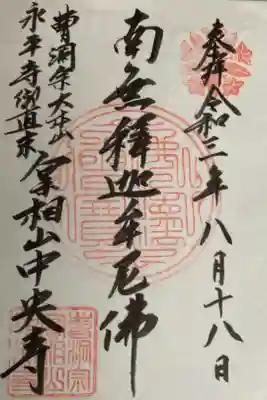 奉拝 令和三年八月十八日
南無釋迦牟尼佛
曹洞宗大本山
永平寺御直末
実相山中央寺